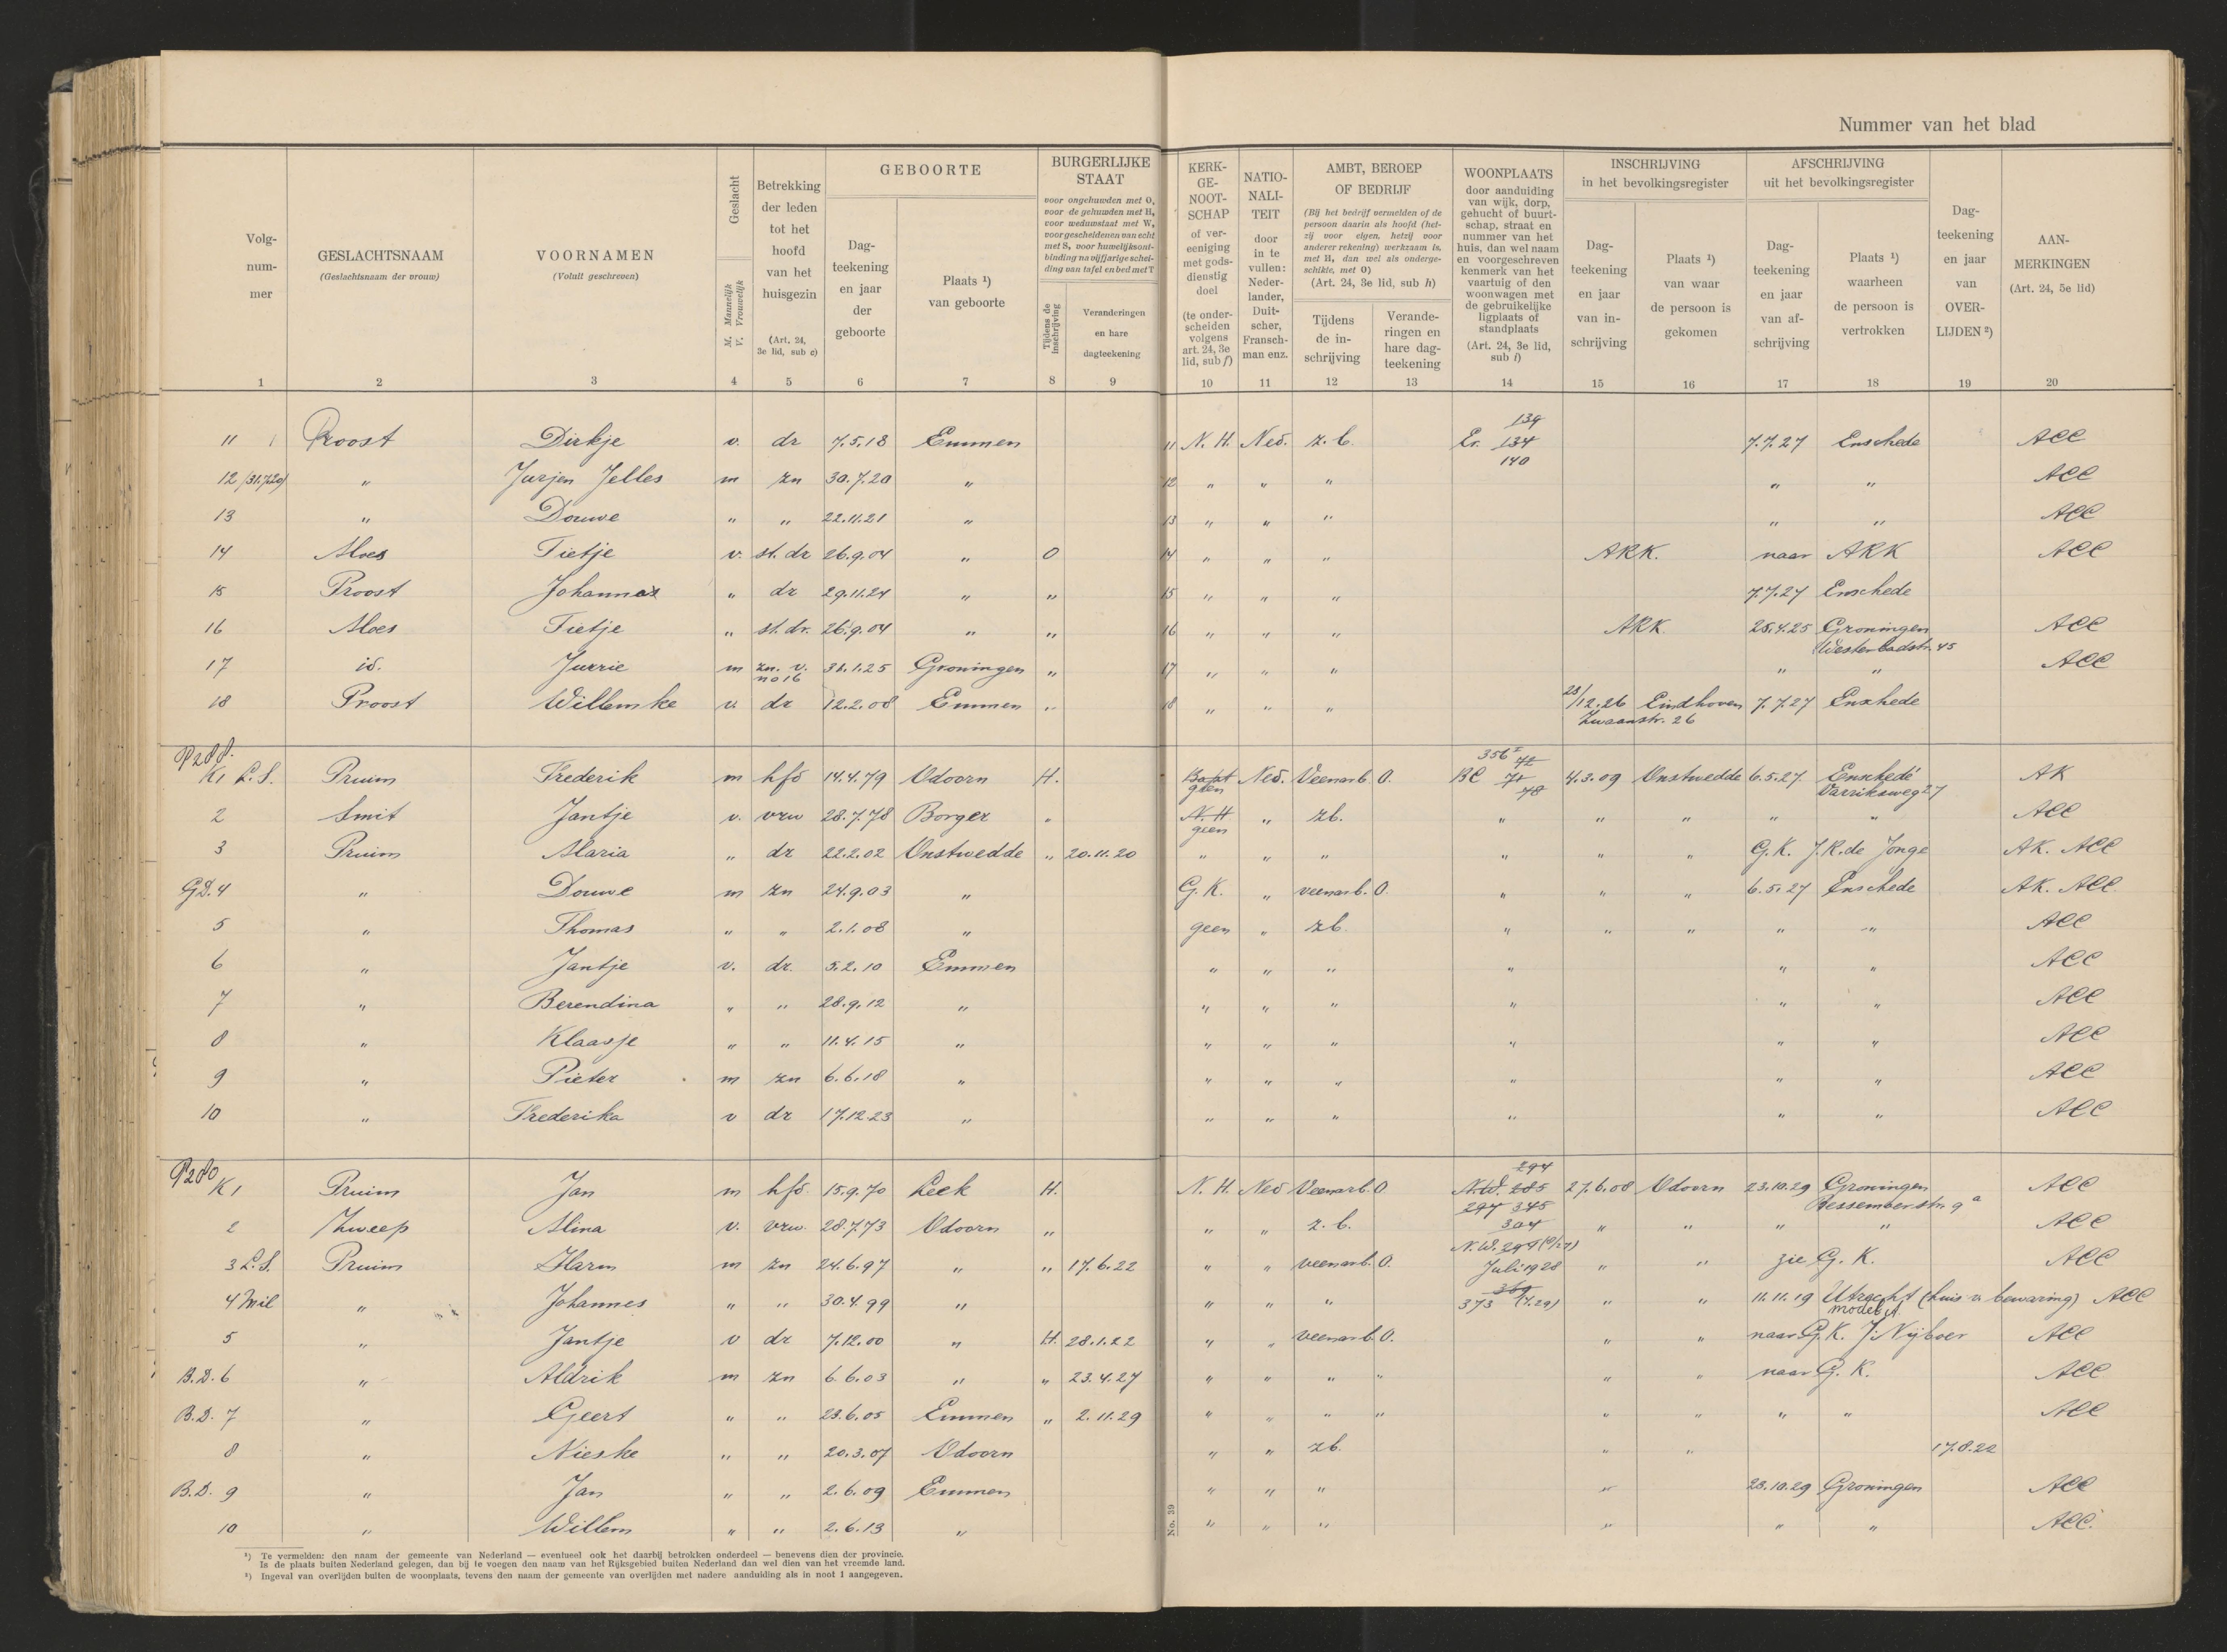 Nummer van het blad
Volg-
num-
mer
GESLACHTSNAAM
(Geslachtsnaam der vrouw)
VOORNAMEN
(Voluit geschreven)
Geslacht
M. Mannelijk
V. Vrouwelijk
Betrekking
der leden
tot het
hoofd
van het
huisgezin
(Art. 24,
3e lid, sub c)
GEBOORTE
Dag-
teekening
en jaar
der
geboorte
Plaats ¹)
van geboorte
BURGERLIJKE
STAAT
voor ongehuwden met O,
voor de gehuwden met H,
voor weduwstaat met W,
voor gescheidenen van echt
met S, voor huwelijksont-
binding na vijfjarige schei-
ding van tafel en bed met T
Tijdens de
inschrijving
Veranderingen
en hare
dagteekening
KERK-
GE-
NOOT-
SCHAP
of ver-
eeniging
met gods-
dienstig
doel
(te onder-
scheiden
volgens
art. 24, 3e
lid, sub f)
NATIO-
NALI-
TEIT
door
in te
vullen:
Neder-
lander,
Duit-
scher,
Fransch-
man enz.
AMBT, BEROEP
OF BEDRIJF
(Bij het bedrijf vermelden of de
persoon daarin als hoofd (het-
zij voor eigen, hetzij voor
anderer rekening) werkzaam is,
met H, dan wel als onderge-
schikte, met O)
(Art. 24, 3e lid, sub h)
Tijdens
de in-
schrijving
Verande-
ringen en
hare dag-
teekening
WOONPLAATS
door aanduiding
van wijk, dorp,
gehucht of buurt-
schap, straat en
nummer van het
huis, dan wel naam
en voorgeschreven
kenmerk van het
vaartuig of den
woonwagen met
de gebruikelijke
ligplaats of
standplaats
(Art. 24, 3e lid,
sub i)
INSCHRIJVING
in het bevolkingsregister
Dag-
teekening
en jaar
van in-
schrijving
Plaats ¹)
van waar
de persoon is
gekomen
AFSCHRIJVING
uit het bevolkingsregister
Dag-
teekening
en jaar
van af-
schrijving
Plaats ¹)
waarheen
de persoon is
vertrokken
Dag-
teekening
en jaar
van
OVER-
LIJDEN ²)
AAN-
MERKINGEN
(Art. 24, 5e lid)
1 2 3 4 5 6 7 8 9 10 11 12 13 14 15 16 17 18 19 20
139
11 Proost Dirkje v. dr 7.5.18 Emmen 11 N. H. Ned. z. b. Er. 134 7.7.27 Enschede ACC
140
12 (31.7.20) " Jurjen Jelles m zn 30.7.20 " 12 " " " " " ACC
13 " Douwe " " 22.11.21 " 13 " " " " " ACC
14 Moes Tietje v. st. dr 26.9.04 " O 14 " " " ARK. naar ARK ACC
15 Proost Johannes " dr 29.11.24 " " 15 " " " 7.7.27 Enschede
16 Moes Tietje " st. dr. 26.9.04 " " 16 " " " ARK. 28.4.25 Groningen ACC
Westerbadstr. 45
17 id. Jurrie m zn. v. 31.1.25 Groningen " 17 " " " " " ACC
no 16
18 Proost Willemke v. dr 12.2.08 Emmen " 18 " " " 28/12.26 Eindhoven 7.7.27 Enschede
Zwaanstr. 26
P288.
356 I 72
K1 L.S. Pruim Frederik m hfd 14.4.79 Odoorn H. Bapt Ned. Veenarb. O. BC 71 4.3.09 Onstwedde 6.5.27 Enschedé AK
geen 78 Varriksweg 27
2 Smit Jantje v. vrw 28.7.78 Borger " N. H " zb. " " " " " ACC
geen
3 Pruim Maria " dr 22.2.02 Onstwedde " 20.11.20 " " " " " " G. K. J. K. de Jonge AK. ACC
GD. 4 " Douwe m zn 24.9.03 " G. K. " veenarb. O. " " " 6.5.27 Enschede AK. ACC
5 " Thomas " " 2.1.08 " geen " zb. " " " " " ACC
6 " Jantje v. dr. 5.2.10 Emmen " " " " " " ACC
7 " Berendina " " 28.9.12 " " " " " " " ACC
8 " Klaasje " " 11.4.15 " " " " " " " ACC
9 " Pieter m zn 6.6.18 " " " " " " " ACC
10 " Frederika v dr 17.12.23 " " " " " " " ACC
P280
294
K1 Pruim Jan m hfd. 15.9.70 Leek H. N. H. Ned Veenarb. O. N.W. 285 27.6.08 Odoorn 23.10.29 Groningen ACC
297 345 Bessemer.str. 9 a
2 Zweep Alina v. vrw. 28.7.73 Odoorn " " " z. b. 304 " " " " ACC
N.W. 299 (9/27)
3 L.S. Pruim Harm m zn 24.6.97 " " 17.6.22 " " veenarb. O. Juli 1928 " " zie G. K. ACC
369
4 Mil " Johannes " " 30.4.99 " " " " 373 (4.29) " " 11.11.19 Utrecht (huis v. bewaring) ACC
model A.
5 " Jantje v dr 7.12.00 " H. 28.1.22 " " veenarb. O. " " naar G. K. J. Nijboer ACC
B.D. 6 " Aldrik m zn 6.6.03 " " 23.4.27 " " " " " " naar G. K. ACC
B.D. 7 " Geert " " 23.6.05 Emmen " 2.11.29 " " " " " " " " ACC
8 " Nieske " " 20.3.07 Odoorn " " zb. " " 17.8.22
B.D. 9 " Jan " " 2.6.09 Emmen " " " " 23.10.29 Groningen ACC
10 " Willem " " 2.6.13 " " " " " " " ACC.
No. 39
¹) Te vermelden: den naam der gemeente van Nederland — eventueel ook het daarbij betrokken onderdeel — benevens dien der provincie.
Is de plaats buiten Nederland gelegen, dan bij te voegen den naam van het Rijksgebied buiten Nederland dan wel dien van het vreemde land.
²) Ingeval van overlijden buiten de woonplaats, tevens den naam der gemeente van overlijden met nadere aanduiding als in noot 1 aangegeven.